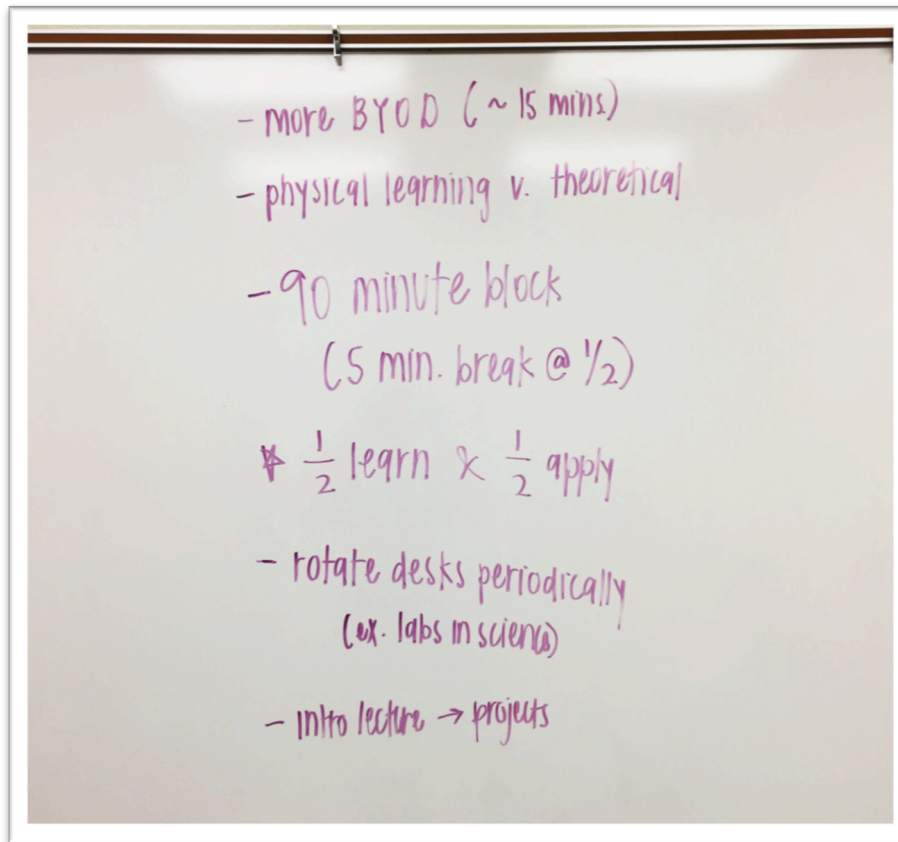 - more BYOD (~ 15 mins.)
- physical learning v. theoretical
- 90 minute block
(5 min. break @ 1/2)
* 1/2 learn & 1/2 apply
- rotate desks periodically
(ex. labs in science)
- intro lecture → projects